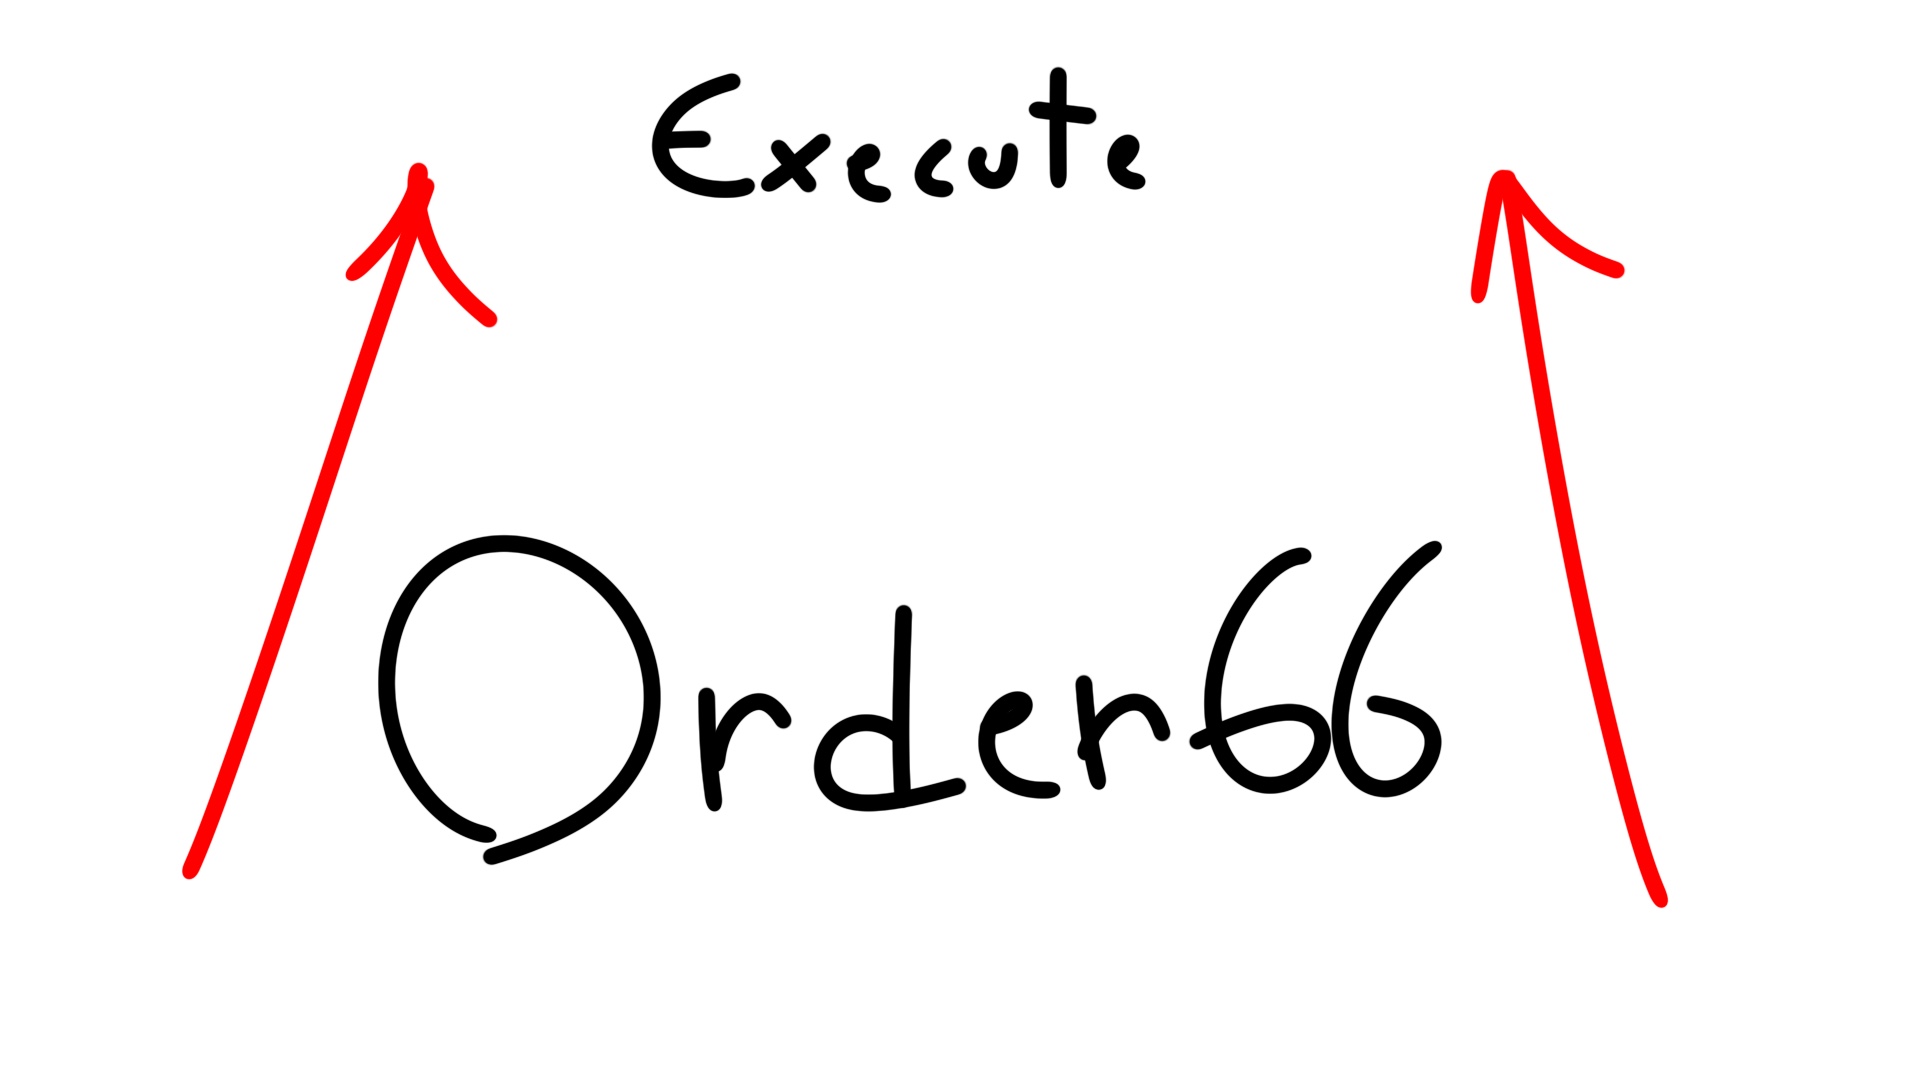 Execute
Order66